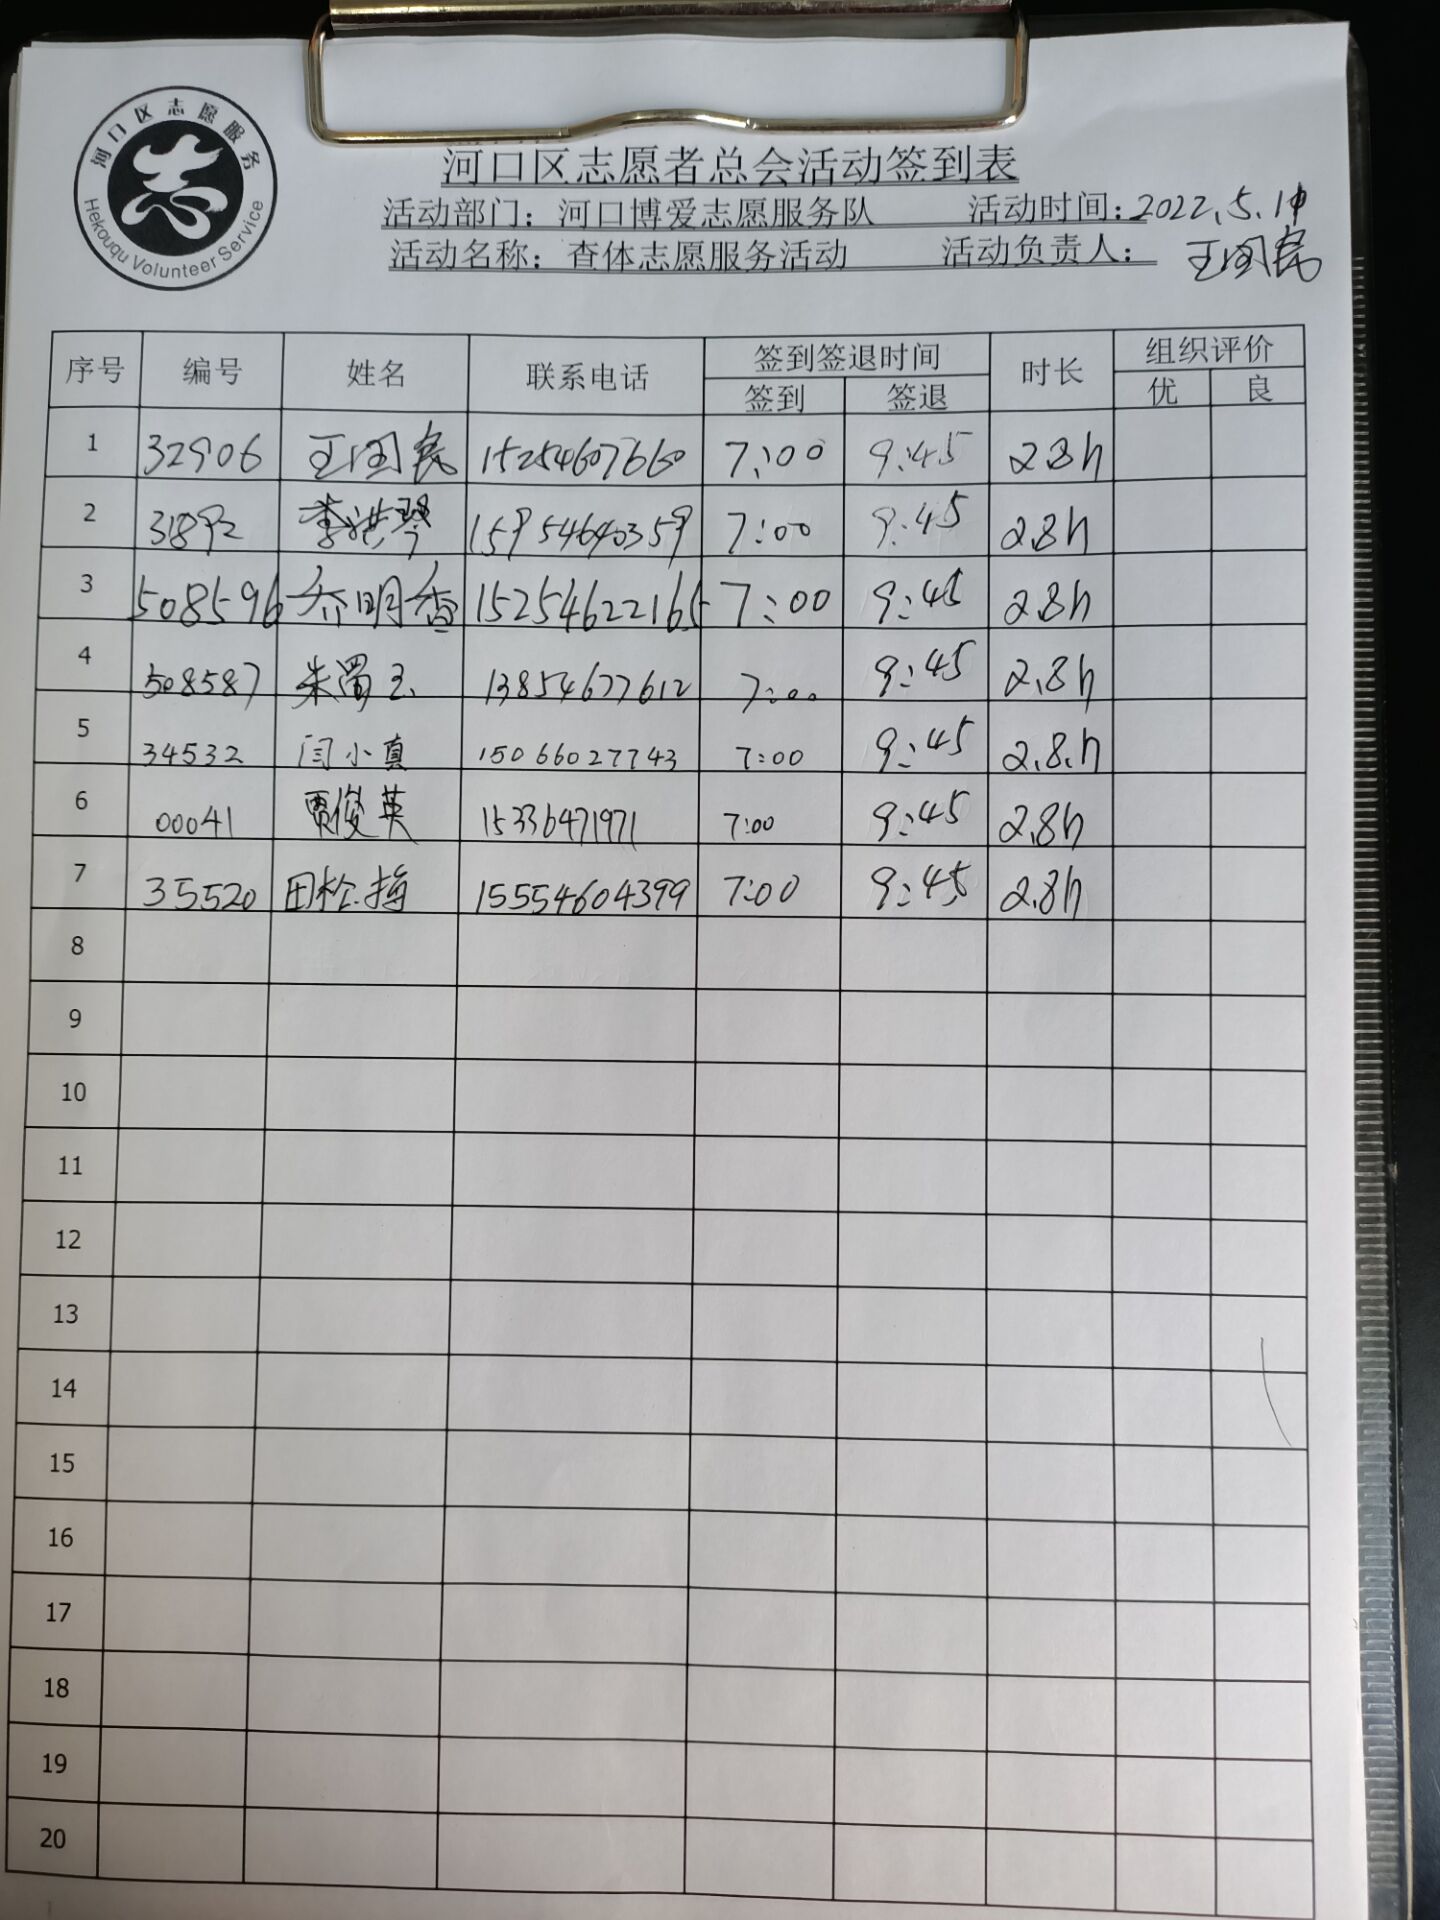 河口区志愿服务
志
Hekouqu Volunteer Service
河口区志愿者总会活动签到表
活动部门：河口博爱志愿服务队 活动时间：2022.5.
活动名称：查体志愿服务活动 活动负责人：王国民
序号 编号 姓名 联系电话 签到签退时间 时长 组织评价
签到 签退 优 良
1 32906 王国民 15254607660 7:00 9:45 2.8h
2 31892 李洪琴 15954640359 7:00 9:45 2.8h
3 508596 乔明香 15254622165 7:00 9:45 2.8h
4 508587 朱 玉 13854677612 7:00 9:45 2.8h
5 34532 闫小真 15066027743 7:00 9:45 2.8.h
6 00041 贾俊英 15336471971 7:00 9:45 2.8h
7 35520 田松梅 15554604399 7:00 9:45 2.8h
8
9
10
11
12
13
14
15
16
17
18
19
20